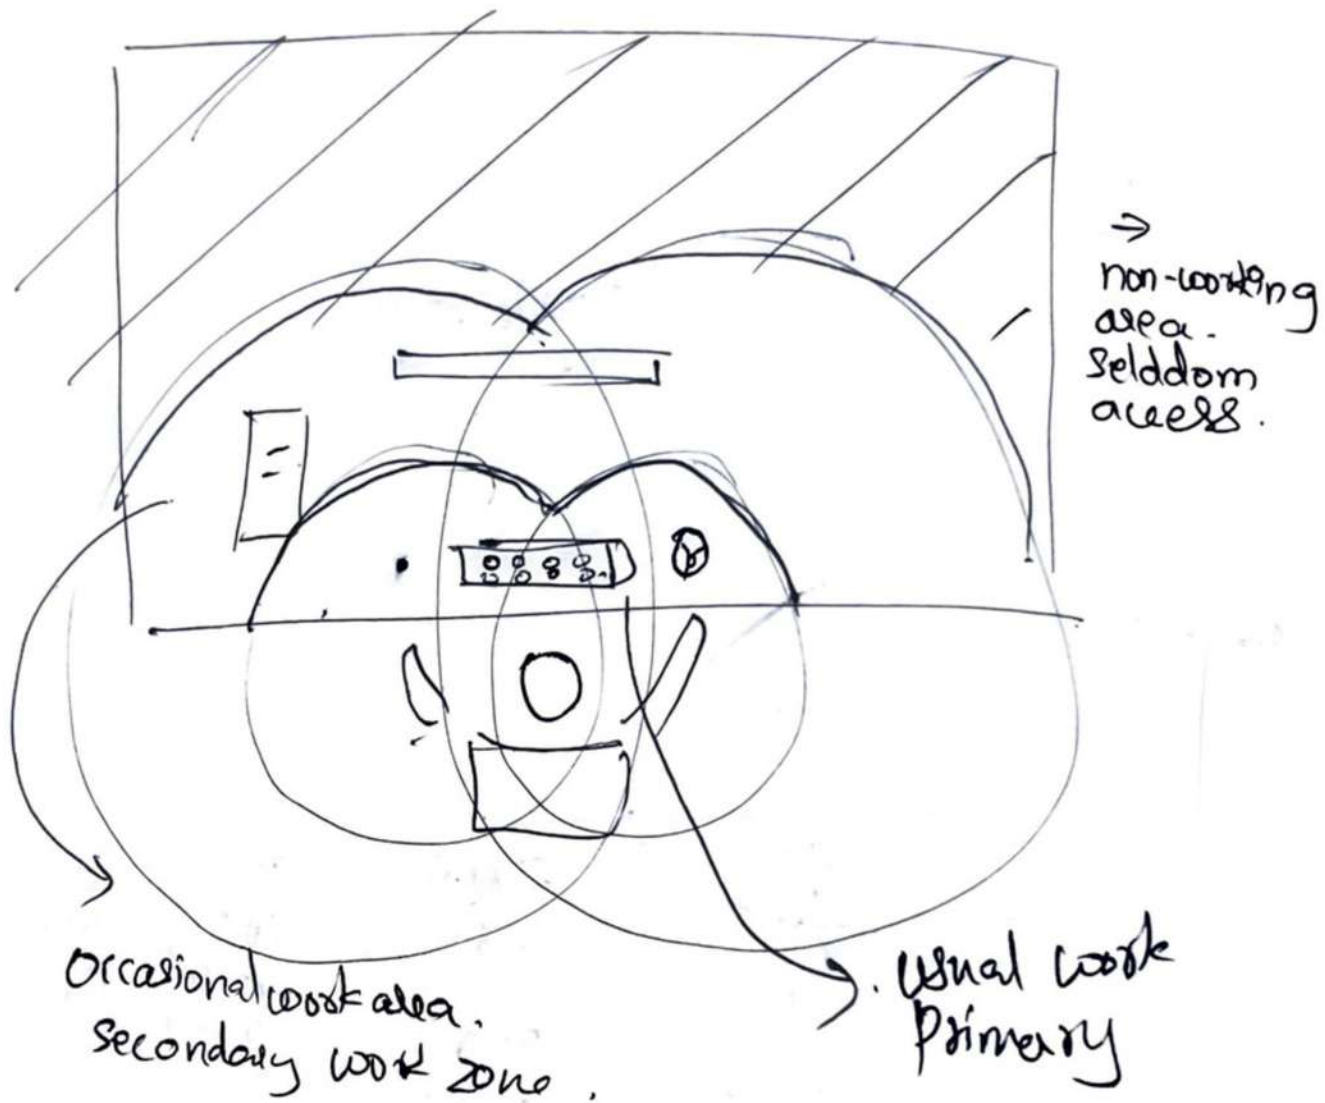 →
non-working
area.
selddom
access.
Occasional work area.
secondary work zone.
. usual work
Primary